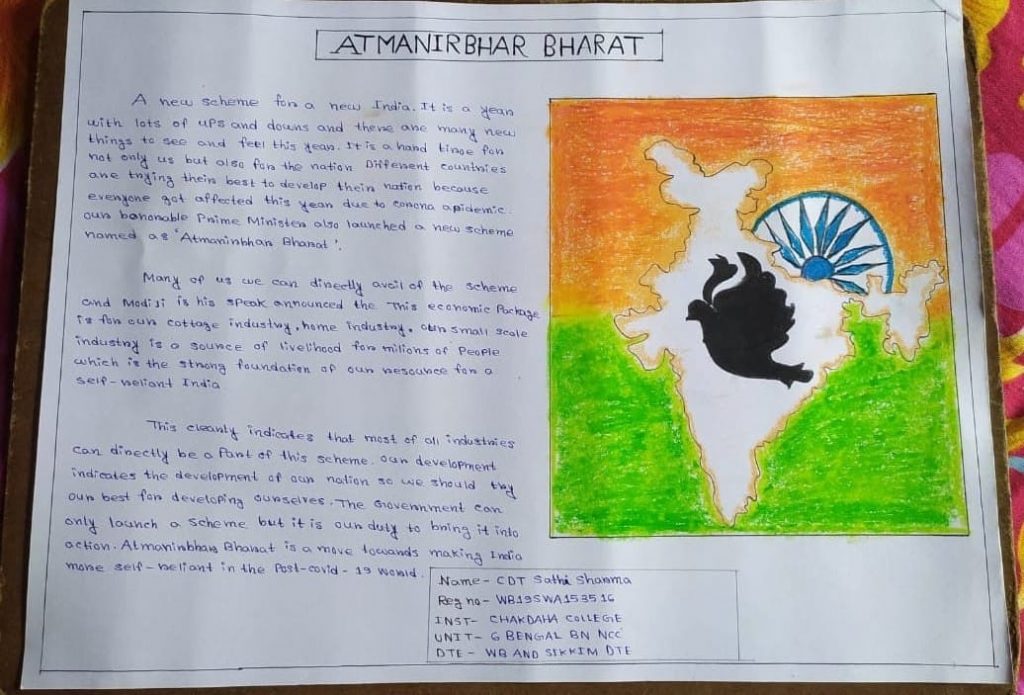 ATMANIRBHAR BHARAT
A new scheme for a new India. It is a year
with lots of ups and downs and there are many new
things to see and feel this year. It is a hard time for
not only us but also for the nation Different countries
are trying their best to develop their nation because
everyone got affected this year due to corona apidemic.
our honorable Prime Minister also launched a new scheme
named as 'Atmanirbhar Bharat'.
Many of us we can directly avail of the scheme
and Modiji is his speak announced the This economic Package
is for our cottage industry, home industry, our small scale
industry is a source of livelihood for milions of People
which is the strong foundation of our resource for a
self-reliant India
This clearly indicates that most of all industries
can directly be a Part of this scheme. our development
indicates the development of our nation so we should try
our best for developing ourselves. The Government can
only launch a scheme but it is our duty to bring it into
action. Atmanirbhar Bharat is a move towards making India
more self-reliant in the Post-covid-19 World.
Name- CDT Sathi Sharma
Reg no- WB19SWA153516
INST- CHAKDAHA COLLEGE
UNIT- 6 BENGAL BN NCC
DTE- WB AND SIKKIM DTE